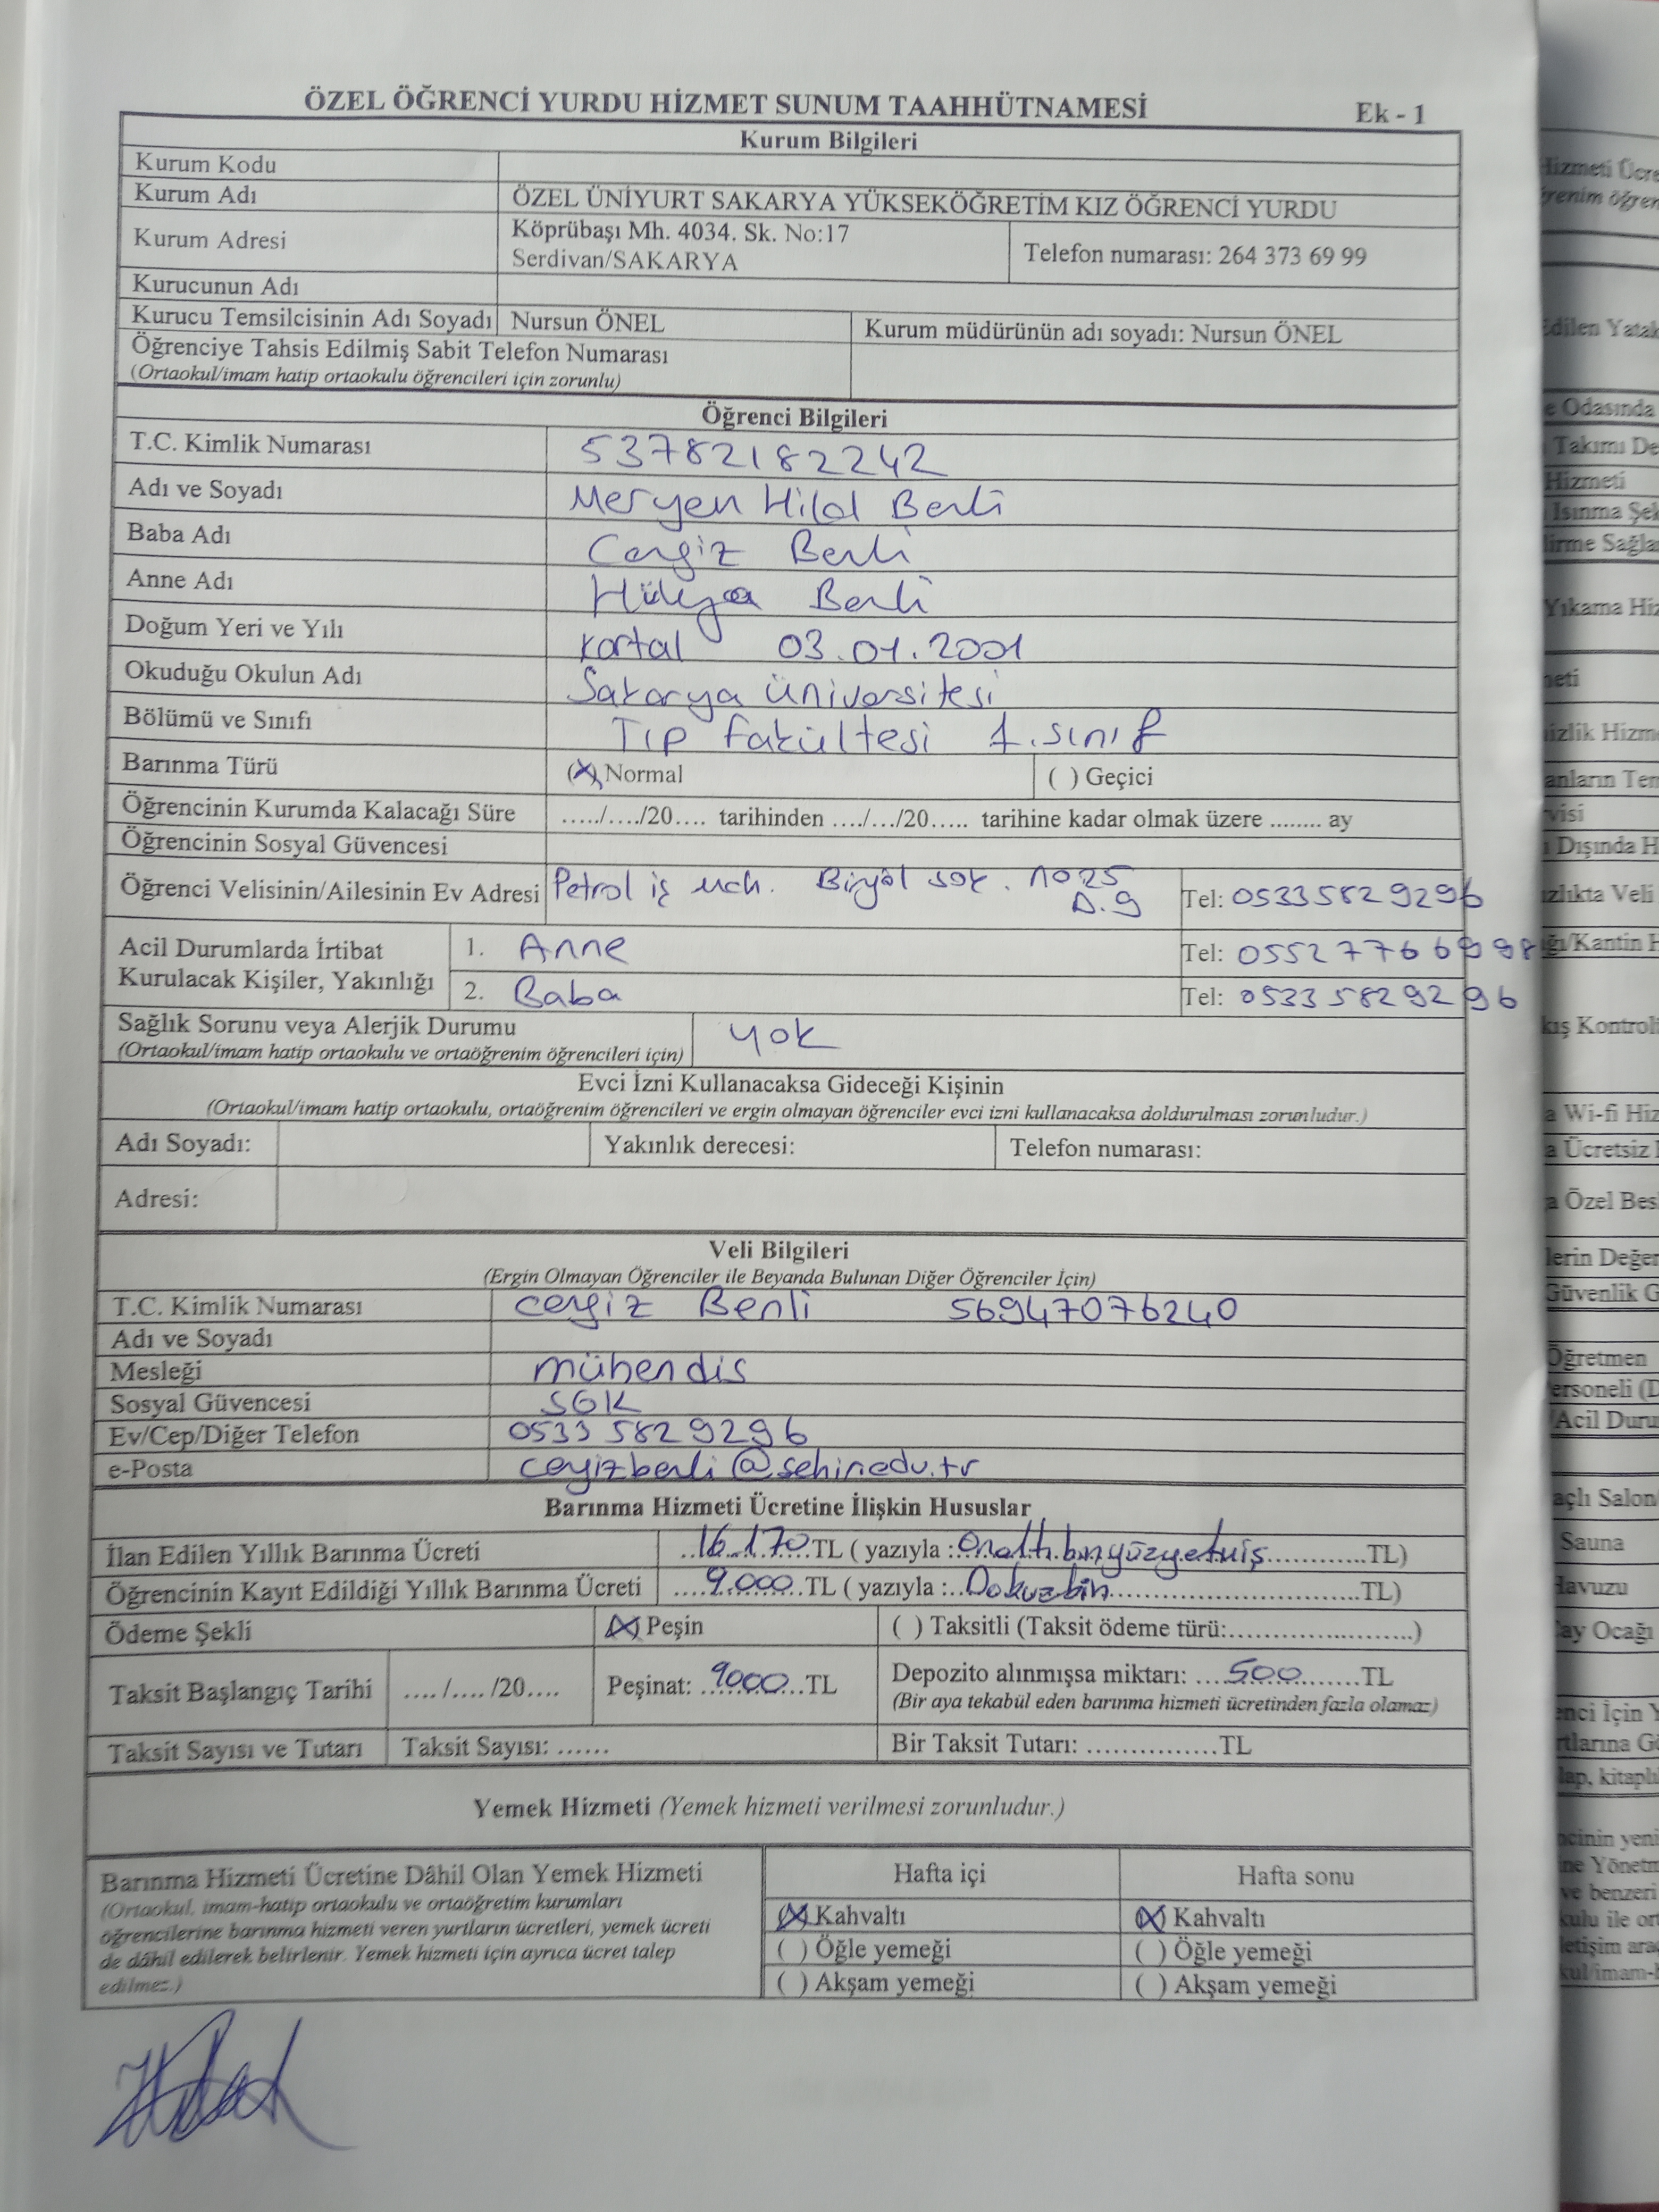 ÖZEL ÖĞRENCİ YURDU HİZMET SUNUM TAAHHÜTNAMESİ Ek - 1
Kurum Bilgileri
Kurum Kodu
Kurum Adı ÖZEL ÜNİYURT SAKARYA YÜKSEKÖĞRETİM KIZ ÖĞRENCİ YURDU
Kurum Adresi Köprübaşı Mh. 4034. Sk. No:17
Serdivan/SAKARYA Telefon numarası: 264 373 69 99
Kurucunun Adı
Kurucu Temsilcisinin Adı Soyadı Nursun ÖNEL Kurum müdürünün adı soyadı: Nursun ÖNEL
Öğrenciye Tahsis Edilmiş Sabit Telefon Numarası
(Ortaokul/imam hatip ortaokulu öğrencileri için zorunlu)
Öğrenci Bilgileri
T.C. Kimlik Numarası 53782182242
Adı ve Soyadı Meryen Hilal Benli
Baba Adı Cengiz Benli
Anne Adı Hülya Benli
Doğum Yeri ve Yılı Kartal 03.01.2001
Okuduğu Okulun Adı Sakarya üniversitesi
Bölümü ve Sınıfı Tıp fakültesi 1.sınıf
Barınma Türü (X) Normal ( ) Geçici
Öğrencinin Kurumda Kalacağı Süre ...../..../20.... tarihinden ..../.../20..... tarihine kadar olmak üzere ........ ay
Öğrencinin Sosyal Güvencesi
Öğrenci Velisinin/Ailesinin Ev Adresi Petrol iş mah. Bingöl sok. no25 D.9 Tel: 05335829296
Acil Durumlarda İrtibat Kurulacak Kişiler, Yakınlığı
1. Anne Tel: 0552776
2. Baba Tel: 05335829296
Sağlık Sorunu veya Alerjik Durumu yok
(Ortaokul/imam hatip ortaokulu ve ortaöğrenim öğrencileri için)
Evci İzni Kullanacaksa Gideceği Kişinin
(Ortaokul/imam hatip ortaokulu, ortaöğrenim öğrencileri ve ergin olmayan öğrenciler evci izni kullanacaksa doldurulması zorunludur.)
Adı Soyadı: Yakınlık derecesi: Telefon numarası:
Adresi:
Veli Bilgileri
(Ergin Olmayan Öğrenciler ile Beyanda Bulunan Diğer Öğrenciler İçin)
T.C. Kimlik Numarası cengiz Benli 56947076240
Adı ve Soyadı
Mesleği mühendis
Sosyal Güvencesi SGK
Ev/Cep/Diğer Telefon 0533 5829296
e-Posta cengizbenli@sehir.edu.tr
Barınma Hizmeti Ücretine İlişkin Hususlar
İlan Edilen Yıllık Barınma Ücreti ..16.170..TL ( yazıyla :.Onaltıbinyüzyetmiş............TL)
Öğrencinin Kayıt Edildiği Yıllık Barınma Ücreti ....9.000..TL ( yazıyla :..Dokuzbin............................TL)
Ödeme Şekli (X) Peşin ( ) Taksitli (Taksit ödeme türü:........................)
Taksit Başlangıç Tarihi ..../..../20.... Peşinat: ..9000..TL Depozito alınmışsa miktarı: ....500........TL
(Bir aya tekabül eden barınma hizmeti ücretinden fazla olamaz)
Taksit Sayısı ve Tutarı Taksit Sayısı: ...... Bir Taksit Tutarı: ...............TL
Yemek Hizmeti (Yemek hizmeti verilmesi zorunludur.)
Barınma Hizmeti Ücretine Dâhil Olan Yemek Hizmeti Hafta içi Hafta sonu
(Ortaokul, imam-hatip ortaokulu ve ortaöğretim kurumları
öğrencilerine barınma hizmeti veren yurtların ücretleri, yemek ücreti
de dâhil edilerek belirlenir. Yemek hizmeti için ayrıca ücret talep
edilmez.)
(X) Kahvaltı (X) Kahvaltı
( ) Öğle yemeği ( ) Öğle yemeği
( ) Akşam yemeği ( ) Akşam yemeği